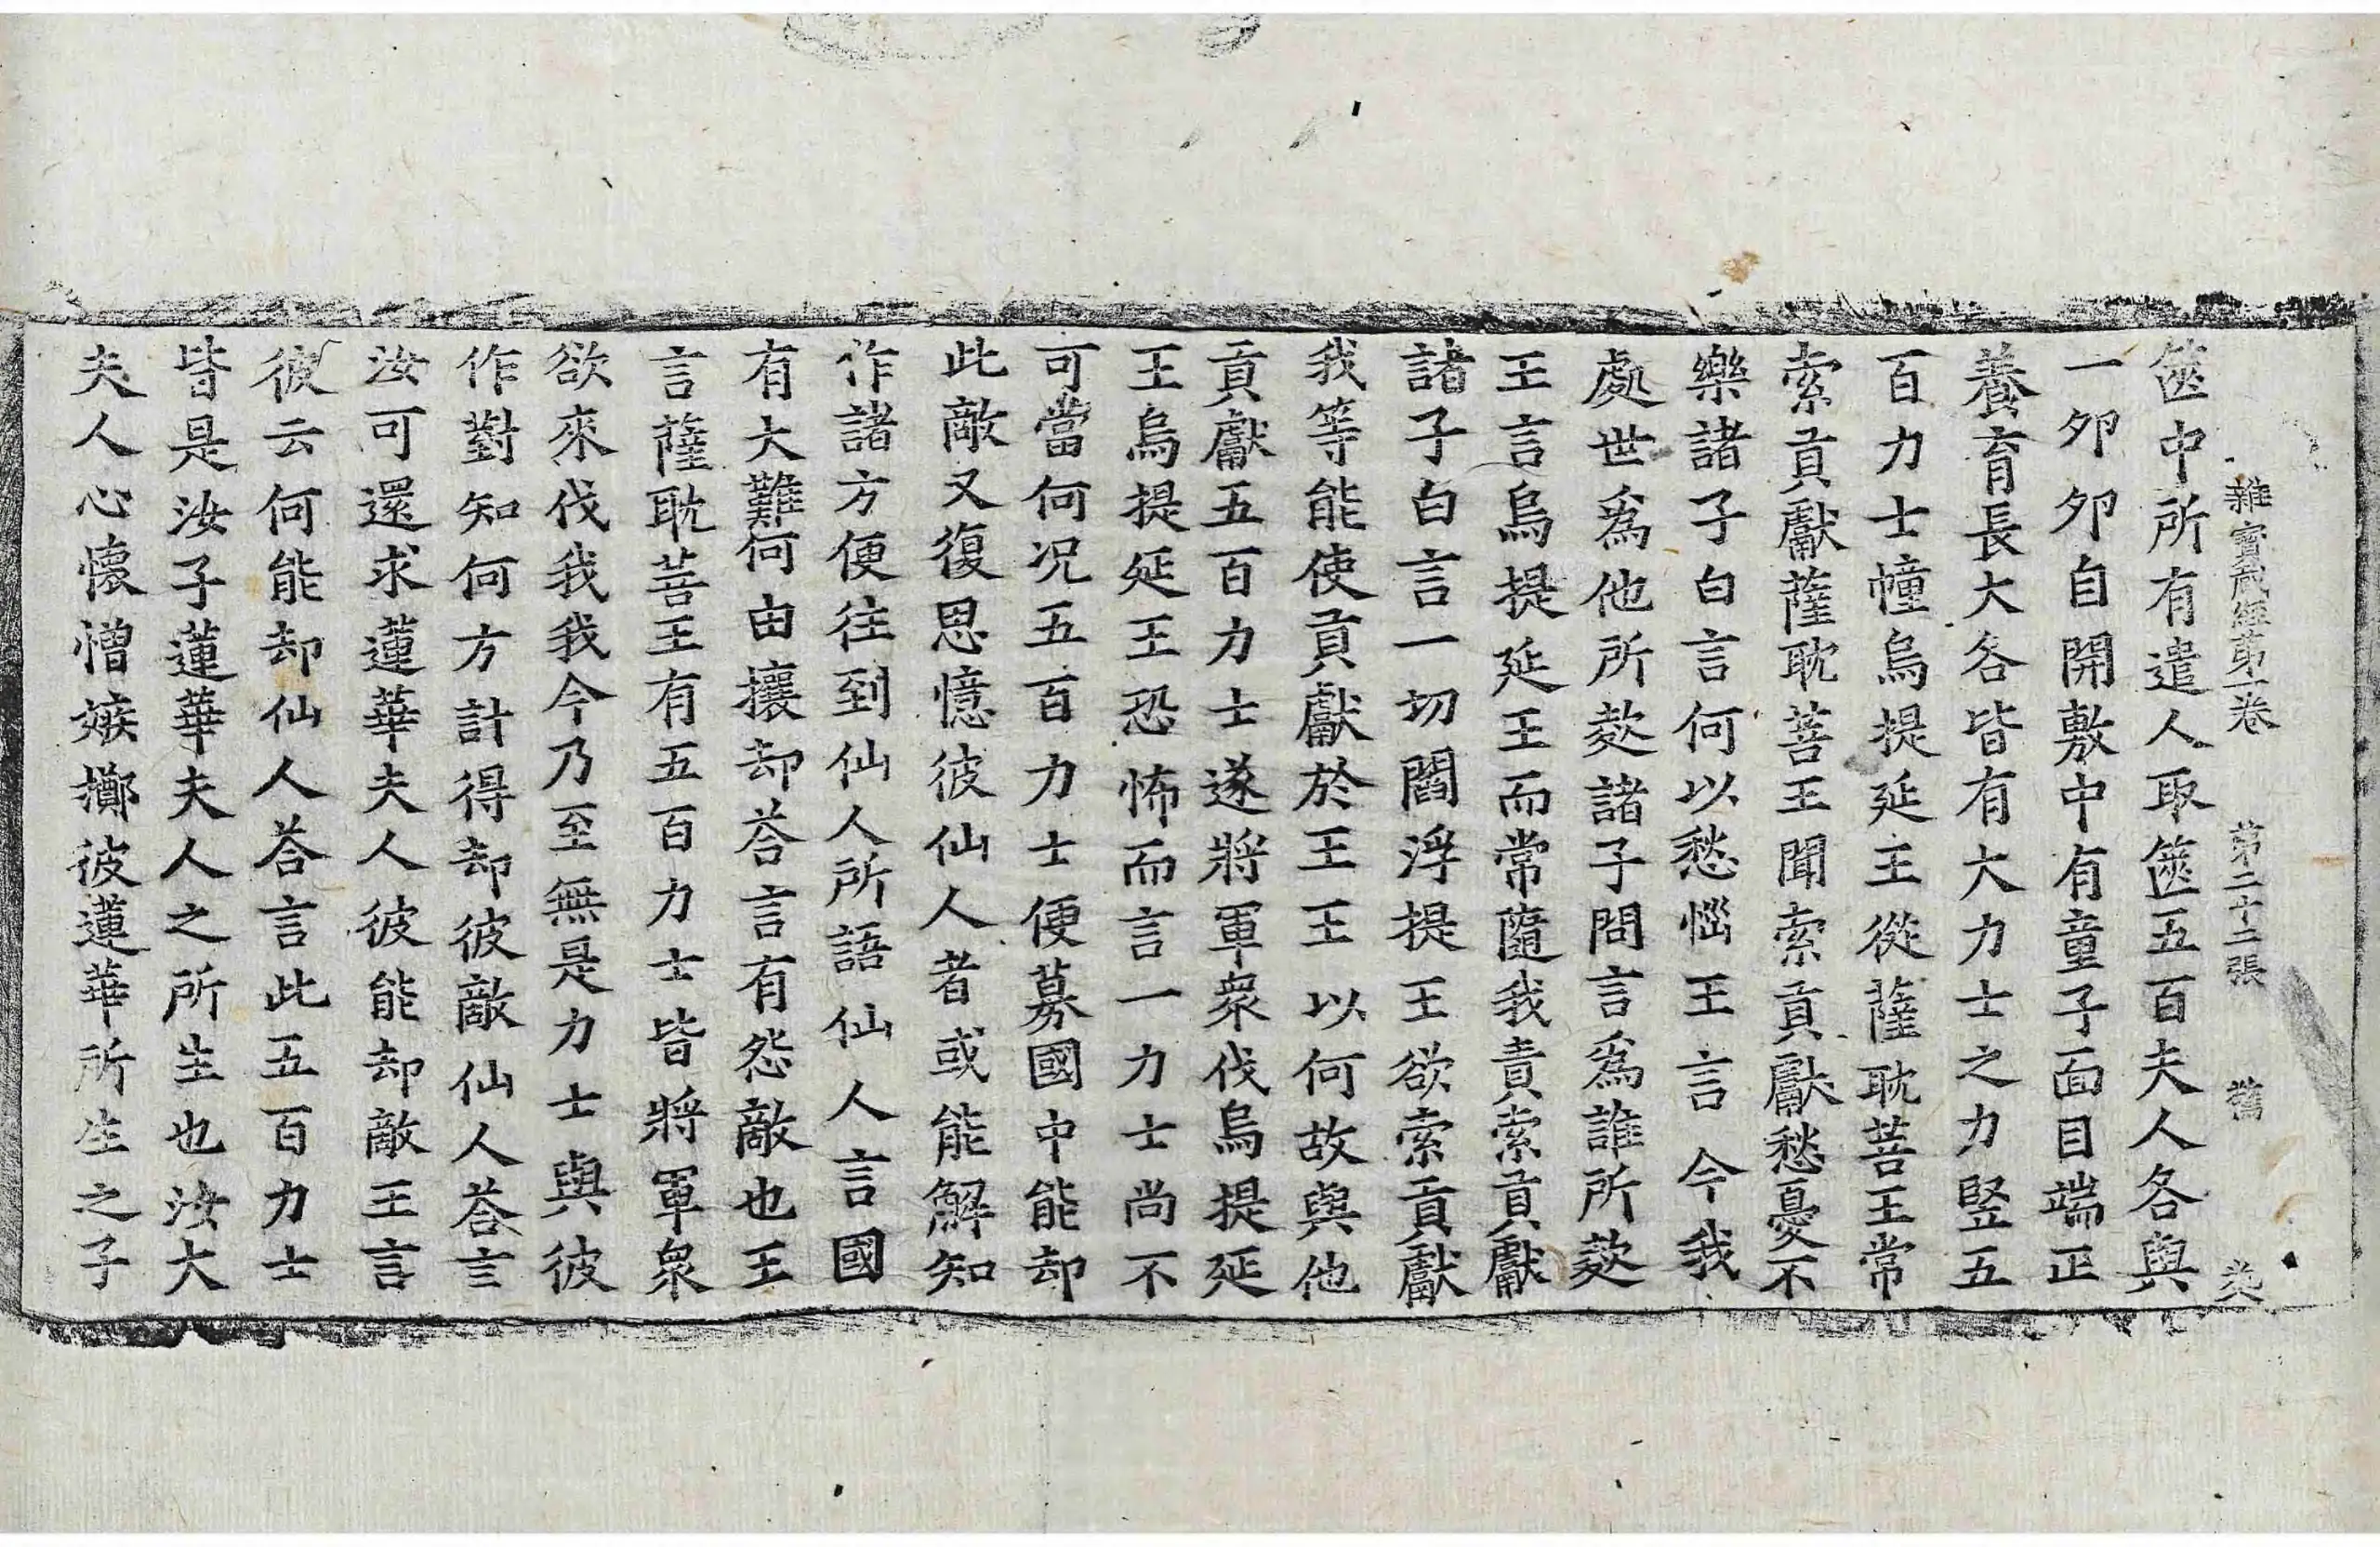 雜寶藏經第一卷 第二十二張 舊
篋中所有遣人取篋五百夫人各與
一夘夘自開敷中有童子面目端正
養育長大各皆有大力士之力竪五
百力士幢烏提延王從薩耽菩王常
索貢獻薩耽菩王聞索貢獻愁憂不
樂諸子白言何以愁惱王言今我
處世爲他所欺諸子問言爲誰所欺
王言烏提延王而常隨我責索貢獻
諸子白言一切閻浮提王欲索貢獻
我等能使貢獻於王王以何故與他
貢獻五百力士遂將軍衆伐烏提延
王烏提延王恐怖而言一力士尚不
可當何況五百力士便募國中能却
此敵又復思憶彼仙人者或能解知
作諸方便往到仙人所語仙人言國
有大難何由攘却荅言有怨敵也王
言薩耽菩王有五百力士皆將軍衆
欲來伐我我今乃至無是力士與彼
作對知何方計得却彼敵仙人荅言
汝可還求蓮華夫人彼能却敵王言
彼云何能却仙人荅言此五百力士
皆是汝子蓮華夫人之所生也汝大
夫人心懷憎嫉擲彼蓮華所生之子